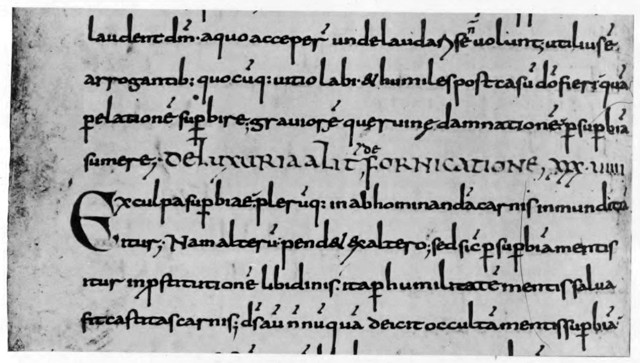 laudent dm̄· a quo acceper̄ unde laudari se n̄ uolunt; utilius ē
arrogantib; quocūq; uitio labi· & humiles post casū dō fieri· quā
ꝑ elationē suꝑbire; grauiorē que ruinę damnationē ꝑ suꝑbiā
sumere; DE LUXURIA ALIT̄ DE FORNICATIONE, XXXVIIII
Ex culpa suꝑbiae plerūq: in abhominandā carnis inmunditiā
itur; Nam alterū pend& ex altero; sed sic̄ ꝑ suꝑbiā mentis
itur in ꝓstitutionē libidinis· ita ꝑ humilitatē mentis salua
fit castitas carnis; ds̄ aū nnūquā deicit occultā mentis suꝑbiā